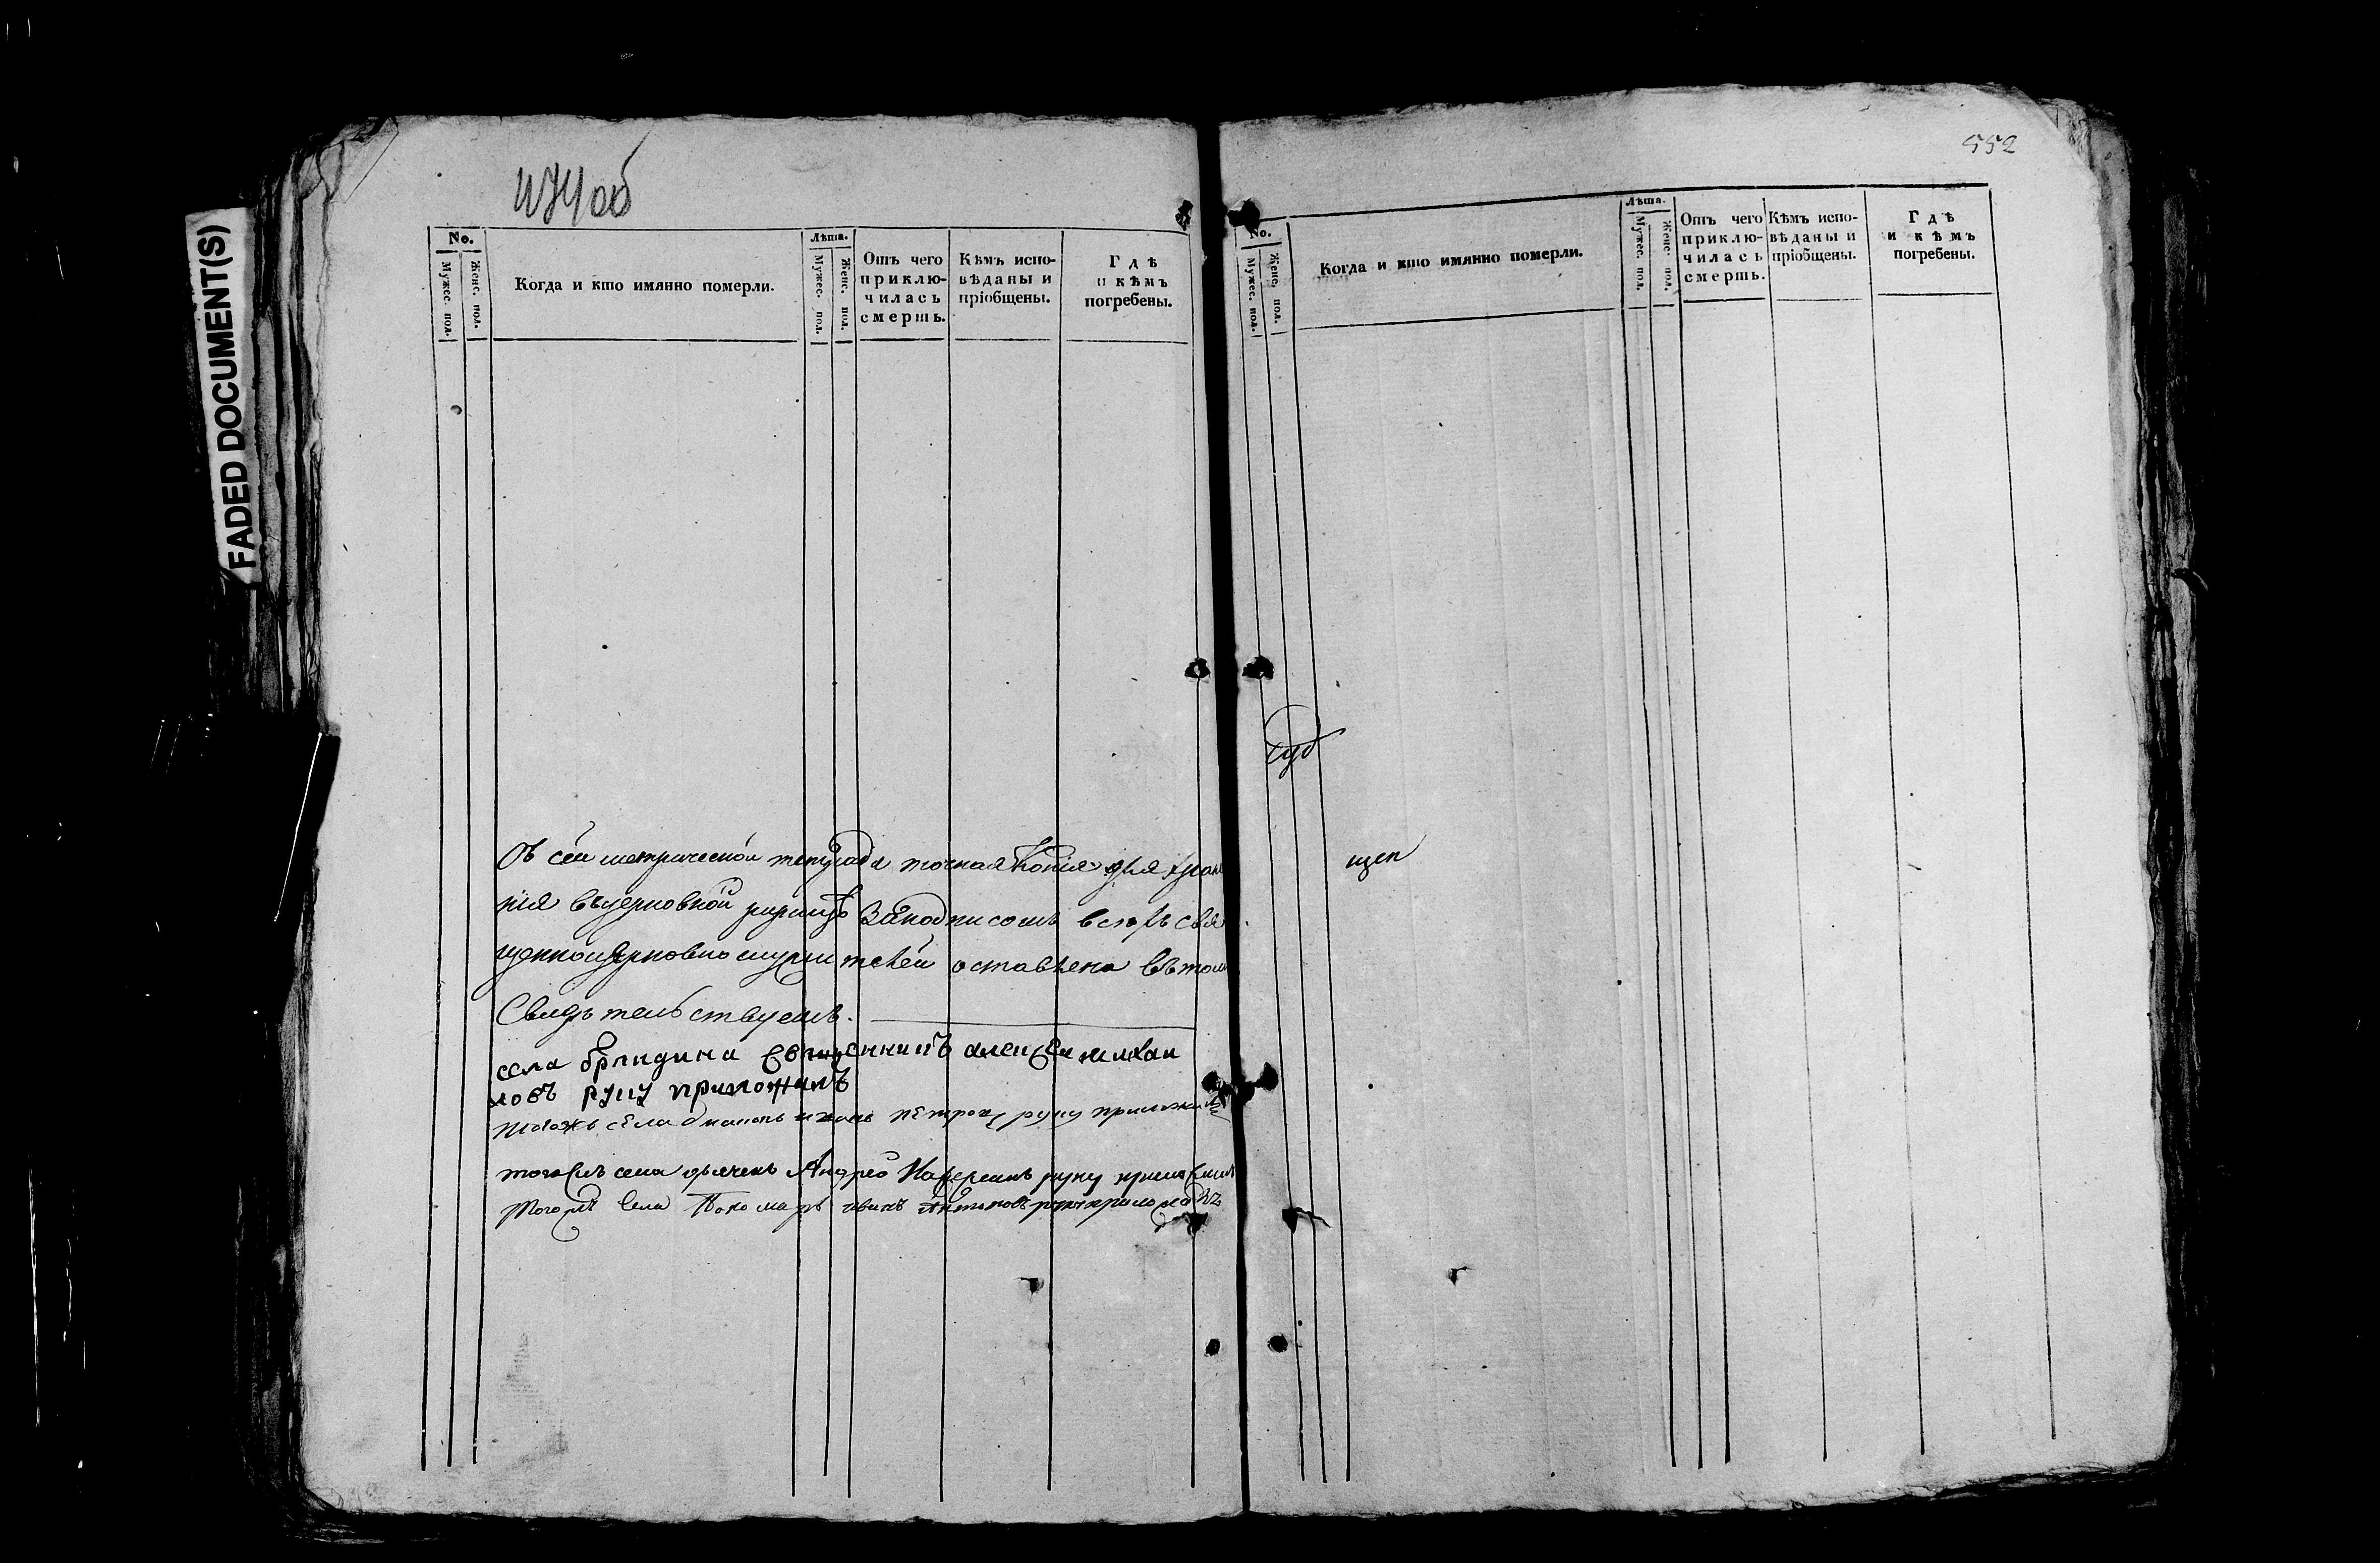 FADED DOCUMENT(S)
474об
No.
Мужес. пол.
Женс. пол.
Когда и кто имянно померли.
Лѣта.
Мужес. пол.
Женс. пол.
Отъ чего
приклю-
чилась
смерть.
Кѣмъ испо-
вѣданы и
пріобщены.
Гдѣ
и кѣмъ
погребены.
Съ сей метрической тетради точная копія для хране
нія въ церковной ризницѣ за подписомъ всѣхъ свя
щенноцерковнослужителей оставлена въ томъ
Свидѣтельствуемъ.
села священникъ алексей михаи
ловъ руку приложилъ
тогожъ села диаконъ иванъ петровъ руку приложилъ
тогожъ села дьячекъ Андрей руку приложилъ
тогожъ села Пономарь иванъ Антоновъ руку приложилъ
552
No.
Мужес. пол.
Женс. пол.
Когда и кто имянно померли.
Лѣта.
Мужес. пол.
Женс. пол.
Отъ чего
приклю-
чилась
смерть.
Кѣмъ испо-
вѣданы и
пріобщены.
Гдѣ
и кѣмъ
погребены.